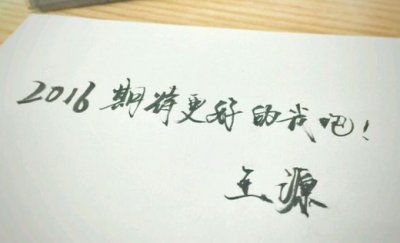 2016期待更好的我吧!
王源